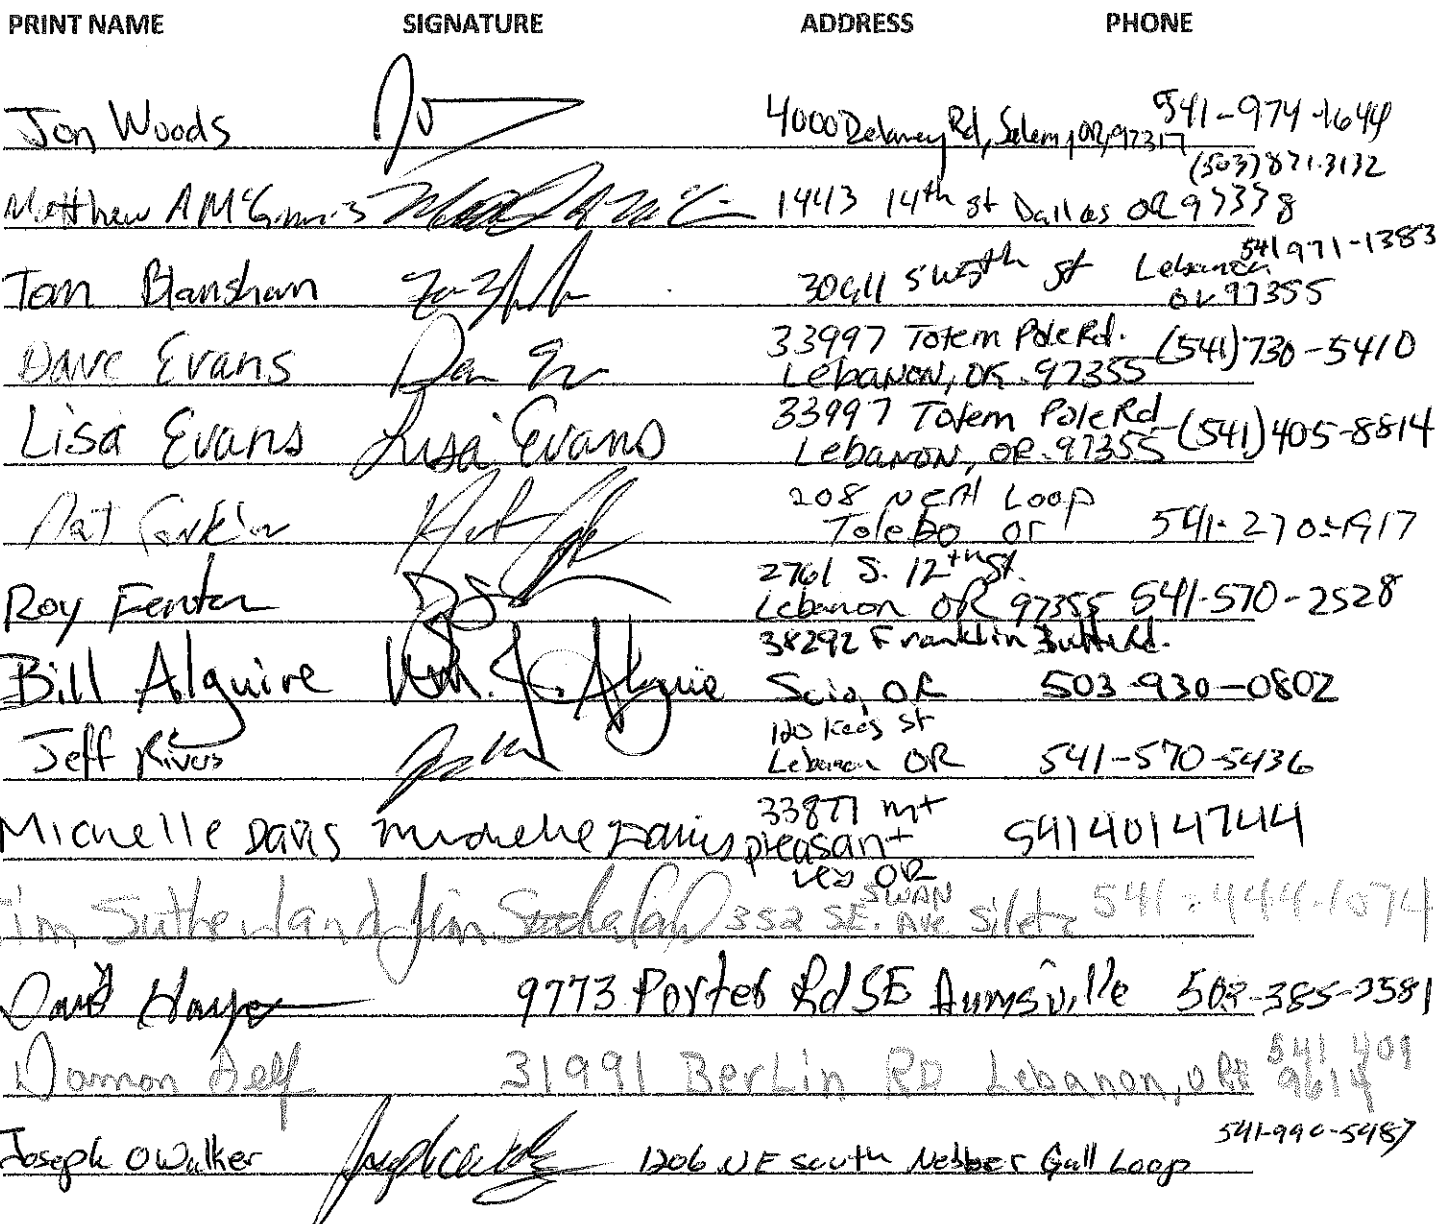 PRINT NAME SIGNATURE ADDRESS PHONE
Jon Woods 4000 Delaney Rd, Salem, OR, 97317 541-974-1644
Matthew A McGinnis 1443 14th st Dallas OR 97338 (503) 871-3132
Tom Blanshan 30911 5 st Lebanon OR 97355 541 971-1383
Dave Evans 33997 Totem Pole Rd. (541) 730-5410
Lebanon, OR. 97355
Lisa Evans Lisa Evans 33997 Totem Pole Rd (541) 405-8814
Lebanon, OR. 97355
Pat 208 Loop
Toledo or 541-270-1917
Roy Fenton 2761 S. 12th St.
Lebanon OR 97355 541-570-2528
Bill Alguire Wm. J. Alguire 38292 Franklin Butte Rd.
Scio, OR 503-930-0802
Jeff Rivers 120 Kees st
Lebanon OR 541-570-5436
Michelle Davis Michelle Davis 33877 mt
pleasant 5414014744
OR
Jim Sutherland Jim Sutherland 352 SE. SWAN Ave Siletz 541-444-1574
David 9773 Porter Rd SE Aumsville 503-385-3581
Damon Self 31991 Berlin RD Lebanon, ORE 541 401
9614
Joseph O Walker 1206 NE South Nebber Gall Loop 541-990-5487